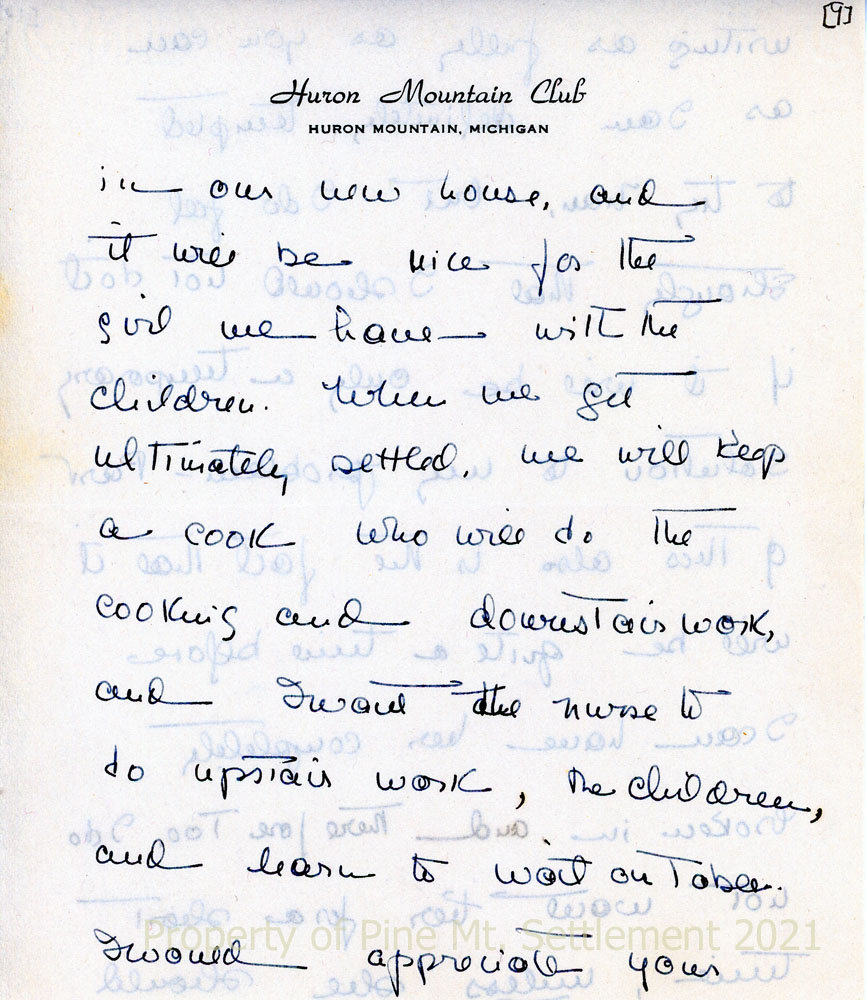 [9]
Huron Mountain Club
HURON MOUNTAIN, MICHIGAN
in our new house, and
it will be nice for the
girl we have with the
children. When we get
ultimately settled, we will keep
a cook who will do the
cooking and downstairs work,
and I want the nurse to
do upstair work, the children,
and learn to wait on table.
I would appreciate your
Property of Pine Mt. Settlement 2021